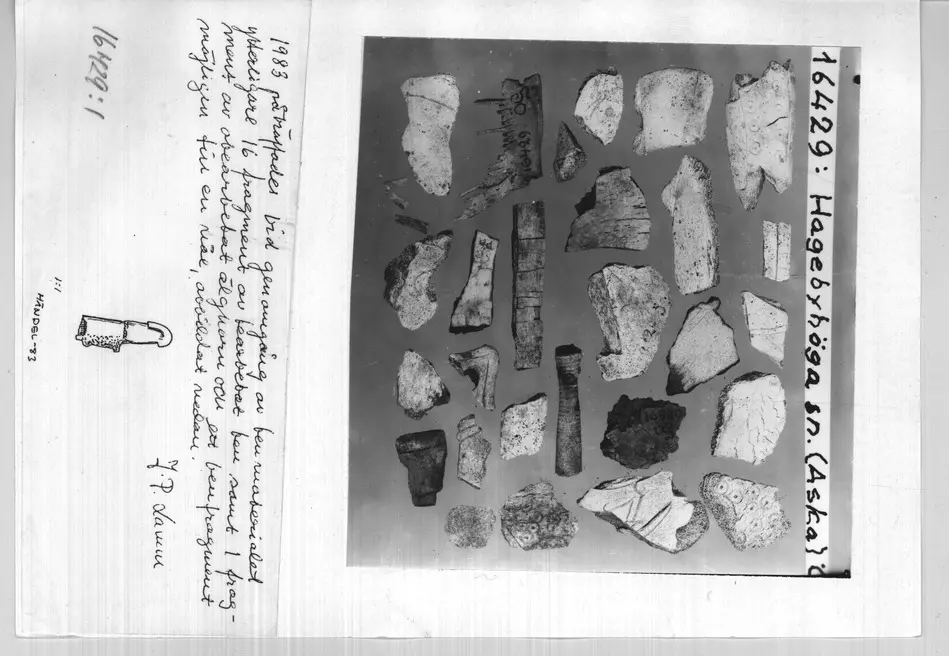 16429: Hagebyhöga sn. (Aska)
16429:1
1983 påträffades vid genomgång av benmaterialet
ytterligare 16 fragment av bearbetat ben samt 1 frag-
ment av obearbetat älghorn och ett benfragment
möjligen till en nål, avbildat nedan.
J. P. Lamm
1:1
HÄNDEL-83
16429